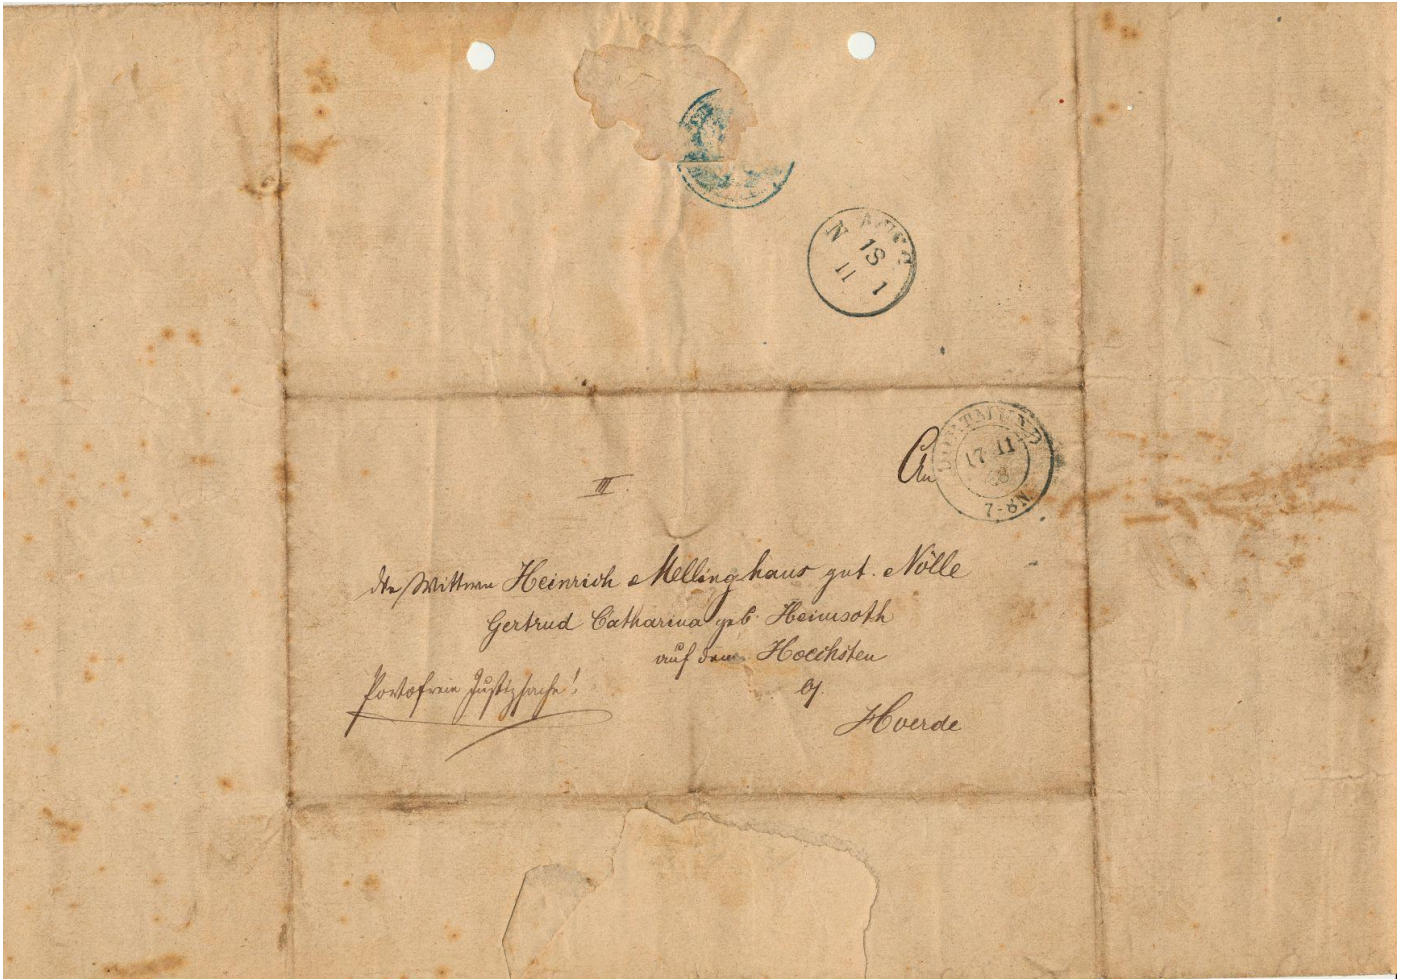 AUSG
N 18 1
11
An
DORTMUND
17 11
7-8N
III.
die Wittwe Heinrich Mellinghaus gnt. Nölle
Gertrud Catharina geb. Heimsoth
auf dem Hoechsten
Portofreie Justizsache!
Hoerde